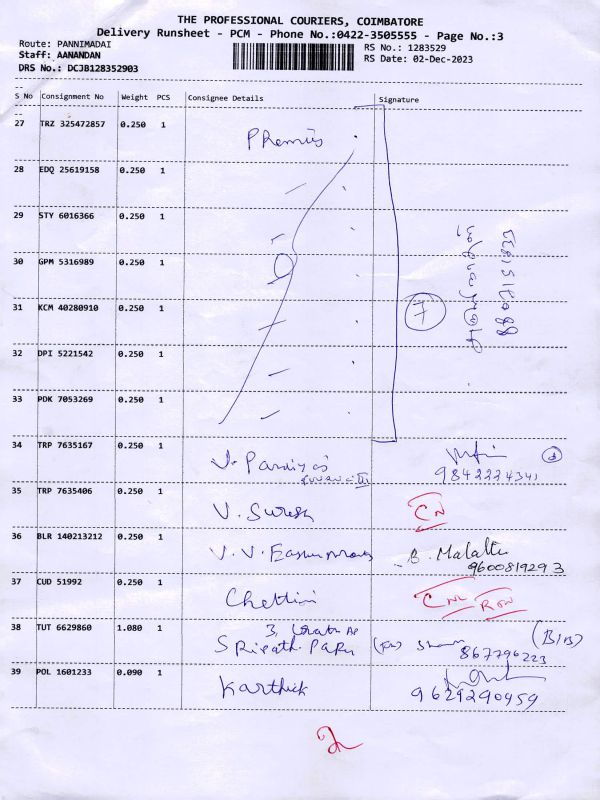 THE PROFESSIONAL COURIERS, COIMBATORE
Delivery Runsheet - PCM - Phone No.:0422-3505555 - Page No.:3
Route: PANNIMADAI RS No.: 1283529
Staff: AANANDAN RS Date: 02-Dec-2023
DRS No.: DCJB128352903
S No Consignment No Weight PCS Consignee Details Signature
27 TRZ 325472857 0.250 1
28 EDQ 25619158 0.250 1
29 STY 6016366 0.250 1
30 GPM 5316989 0.250 1
31 KCM 40280910 0.250 1 7
32 DPI 5221542 0.250 1
33 PDK 7053269 0.250 1
34 TRP 7635167 0.250 1
9842224341
35 TRP 7635406 0.250 1 V. Suresh CN
36 BLR 140213212 0.250 1 B. Malathi
9600819293
37 CUD 51992 0.250 1 Chettini
38 TUT 6629860 1.080 1 3,
867796223
39 POL 1601233 0.090 1 Karthick
9629290459